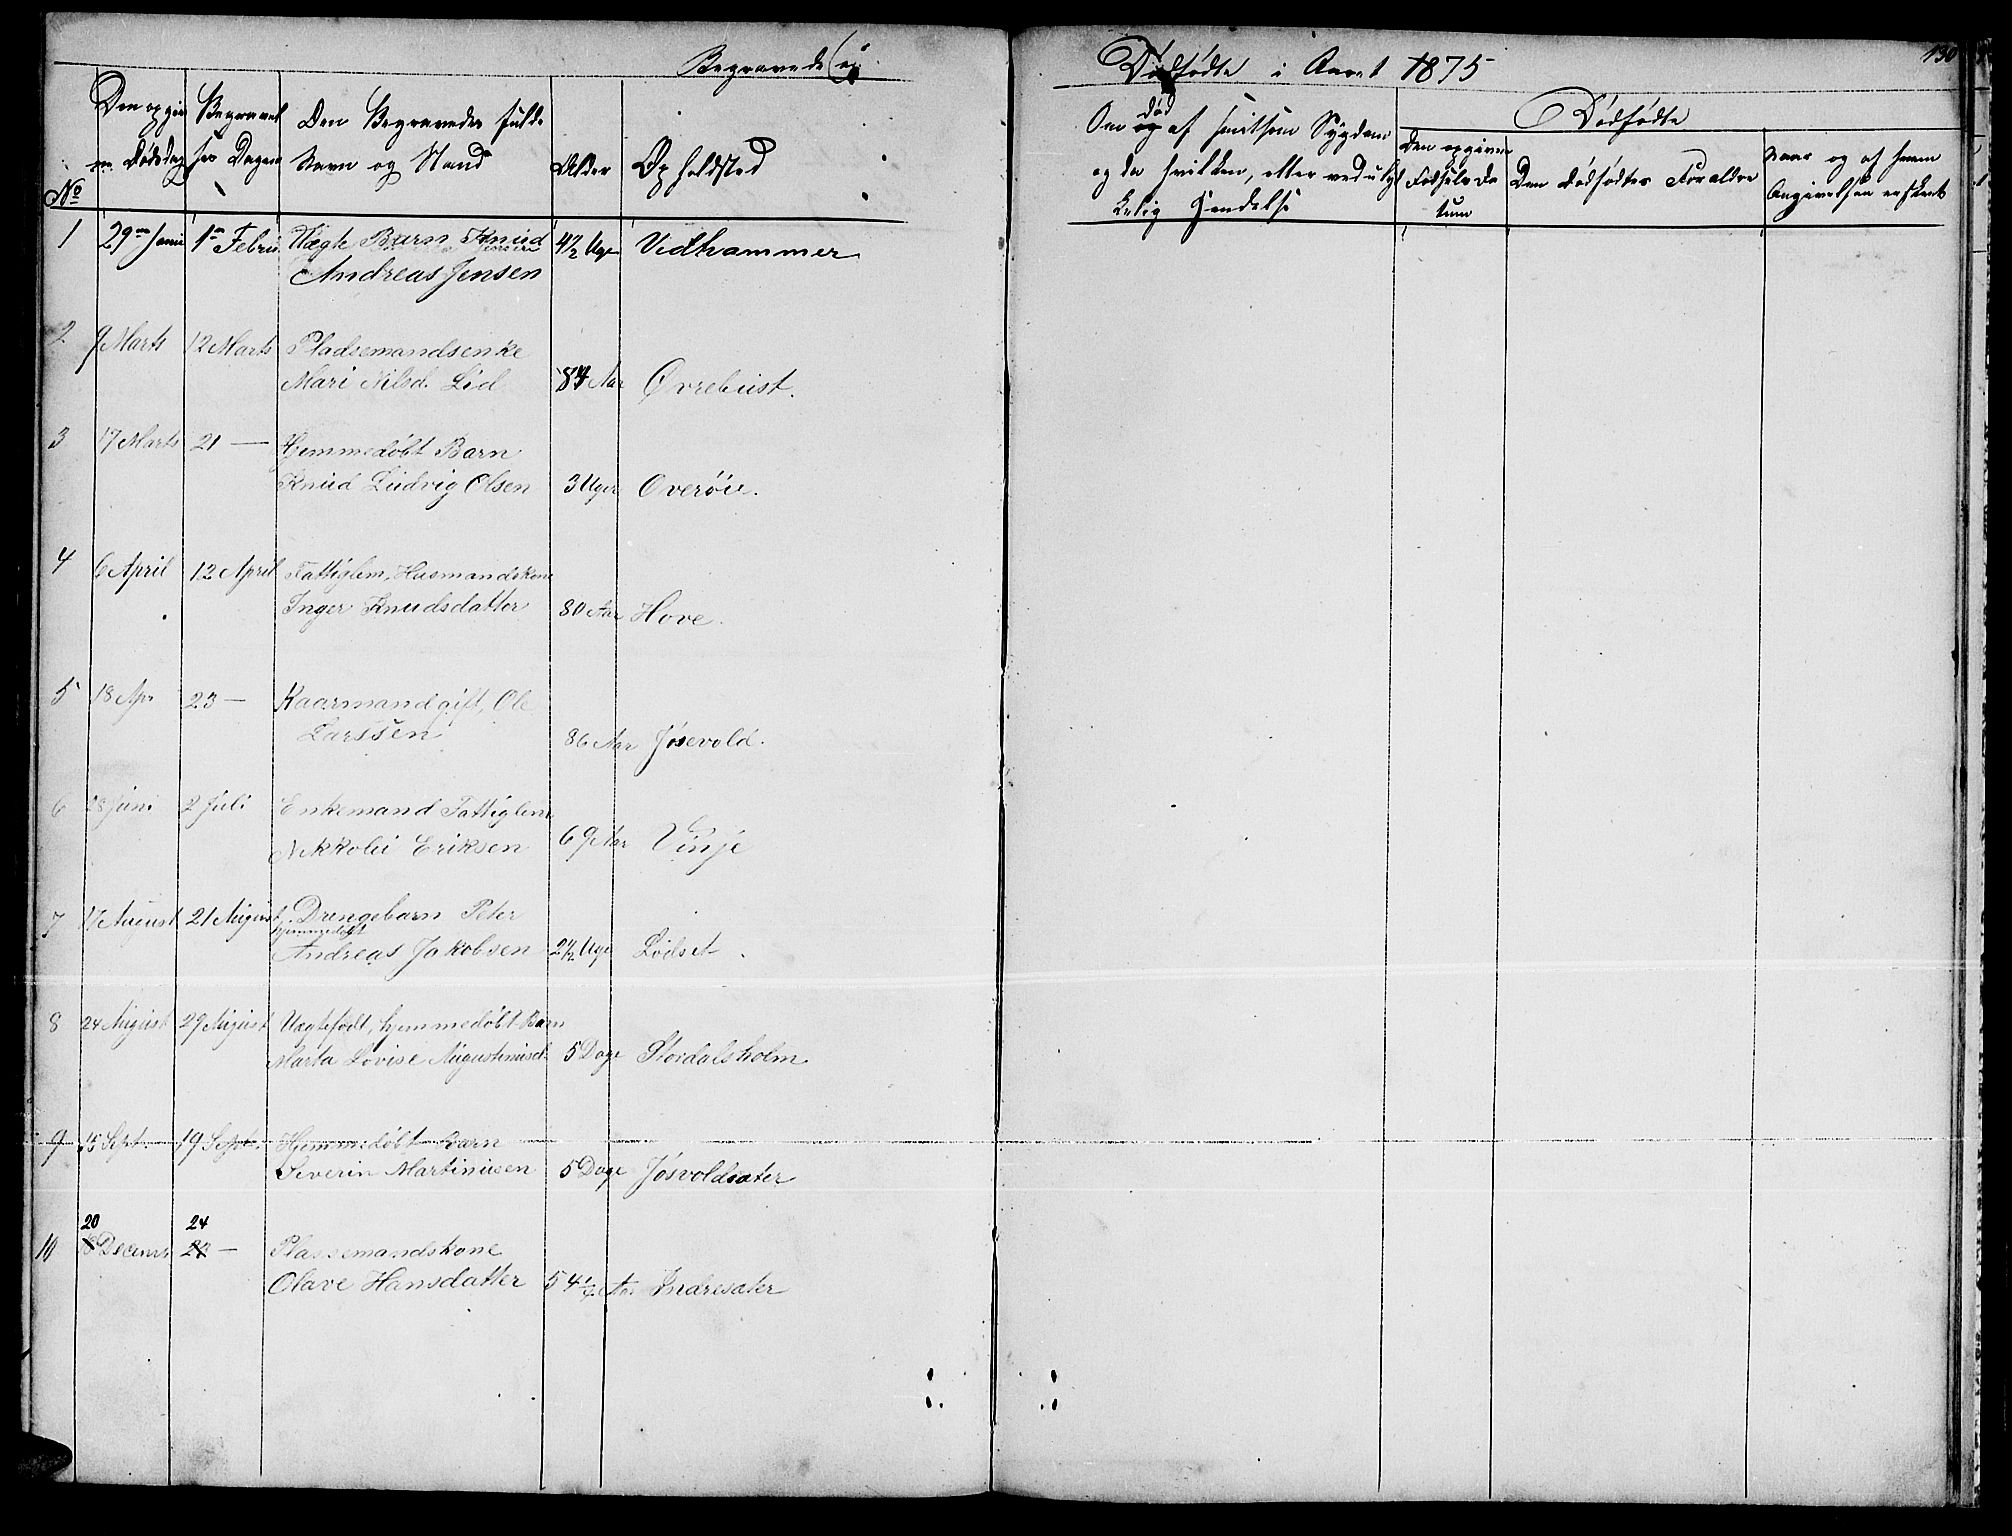 Begravede og Dødfødte i Aaret 1875
130
No
Den opgivne Dødsdag
Begravelses Dagen
Den Begravedes fulde Navn og Stand
Alder
Opholdssted
Om død af smitsom Sygdom og da hvilken, eller ved ulykkelig Hendelse
Dødfødte
Den opgivne Fødsels Datum
Den dødfødtes Forældre
Naar og af hvem Angivelsen er skeet
1 29de Janu 1ste Febru Uægte Barn Knud
Andreas Jensen 4½ Uge Vedhammer
2 9 Marts 12 Marts Pladsemandsenke
Mari Nilsd. Lid 84 Aar Øvrebust.
3 17 Marts 21 — Hjemmedøbt Barn
Knud Ludvig Olsen 3 Uger Overøie.
4 6 April 12 April Fattiglem, Husmandskone
Inger Knudsdatter 80 Aar Hove.
5 18 Apr 23 — Kaarmand gift, Ole
Larssen 86 Aar Jøsevold.
6 28 Juni 2 Juli Enkemand Fattiglem
Nikkolei Eriksen 69 Aar Vinje
7 17 August 21 August Drengebarn Peter
hjemmedøbt
Andreas Jakobsen 2½ Uge Lødset
8 24 August 29 August Uægtefødt, hjemmedøbt Barn
Marta Lovise Augustinusd. 5 Dage Stordalsholm
9 15 Sept. 19 Sept. Hjemmedøbt Barn
Severin Martinusen 5 Dage Jøsvoldsæter
20 24
10 Decemb — Plassemandskone
Olave Hansdatter 54½ Aar Indresæter